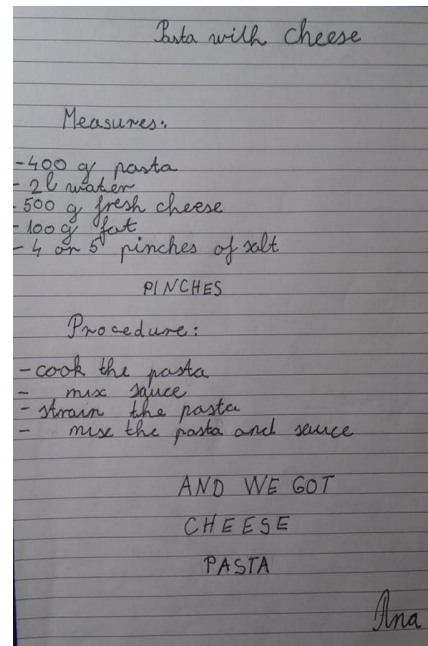 Pasta with cheese
Measures:
-400 g pasta
- 2l water
- 500 g fresh cheese
- 100 g fat
- 4 or 5 pinches of salt
PINCHES
Procedure:
- cook the pasta
- mix sauce
- strain the pasta
- mix the pasta and sauce
AND WE GOT
CHEESE
PASTA
Ana